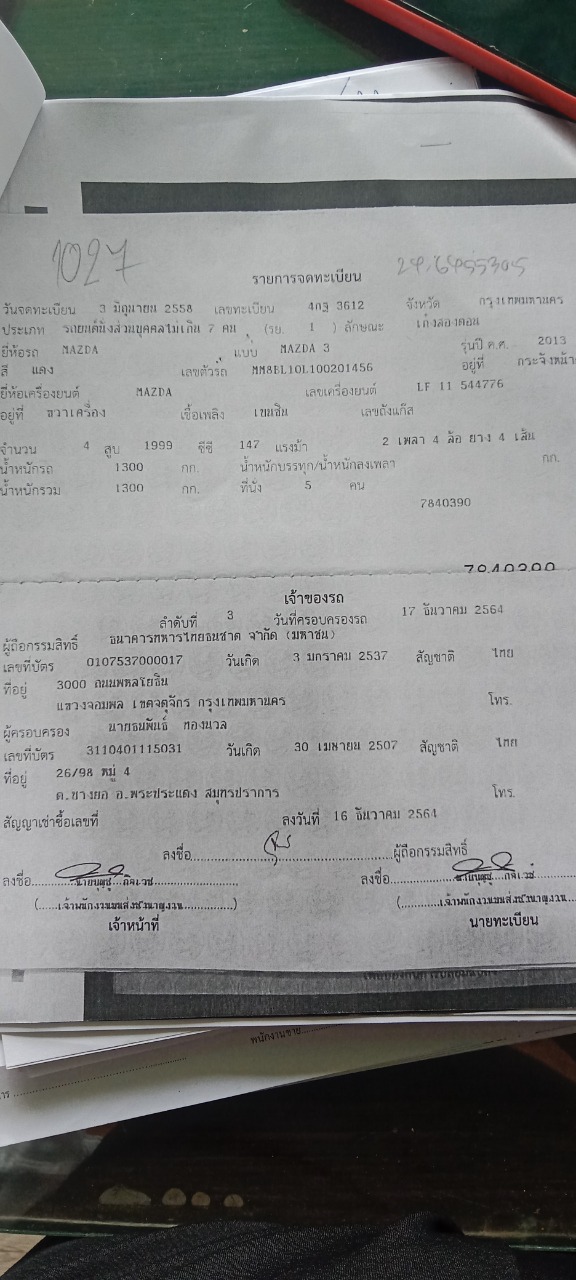 1027
รายการจดทะเบียน
วันจดทะเบียน 3 มิถุนายน 2558 เลขทะเบียน 4กฐ 3612 จังหวัด กรุงเทพมหานคร
ประเภท รถยนต์นั่งส่วนบุคคลไม่เกิน 7 คน (รย. 1 ) ลักษณะ เก๋งสองตอน
ยี่ห้อรถ MAZDA แบบ MAZDA 3 รุ่นปี ค.ศ. 2013
สี แดง เลขตัวรถ MM8BL10L100201456 อยู่ที่ กระจังหน้า
ยี่ห้อเครื่องยนต์ MAZDA เลขเครื่องยนต์ LF 11 544776
อยู่ที่ ขวาเครื่อง เชื้อเพลิง เบนซิน เลขถังแก๊ส
จำนวน 4 สูบ 1999 ซีซี 147 แรงม้า 2 เพลา 4 ล้อ ยาง 4 เส้น
น้ำหนักรถ 1300 กก. น้ำหนักบรรทุก/น้ำหนักลงเพลา กก.
น้ำหนักรวม 1300 กก. ที่นั่ง 5 คน
7840390
7840390
เจ้าของรถ
ลำดับที่ 3 วันที่ครอบครองรถ 17 ธันวาคม 2564
ผู้ถือกรรมสิทธิ์ ธนาคารทหารไทยธนชาต จำกัด (มหาชน)
เลขที่บัตร 0107537000017 วันเกิด 3 มกราคม 2537 สัญชาติ ไทย
ที่อยู่ 3000 ถนนพหลโยธิน
แขวงจอมพล เขตจตุจักร กรุงเทพมหานคร โทร.
ผู้ครอบครอง นายธนพันธ์ ทองนวล
เลขที่บัตร 3110401115031 วันเกิด 30 เมษายน 2507 สัญชาติ ไทย
ที่อยู่ 26/98 หมู่ 4
ต.บางยอ อ.พระประแดง สมุทรปราการ โทร.
สัญญาเช่าซื้อเลขที่ ลงวันที่ 16 ธันวาคม 2564
ลงชื่อ ผู้ถือกรรมสิทธิ์
ลงชื่อ ลงชื่อ
(เจ้าพนักงานขนส่งชำนาญงาน) (เจ้าพนักงานขนส่งชำนาญงาน
เจ้าหน้าที่ นายทะเบียน
พนักงานขาย